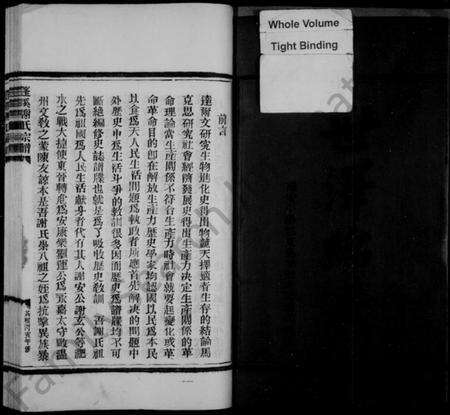 Whole Volume
Tight Binding
前言
達爾文研究生物進化史得出物競天擇適者生存的結論馬
克思研究社會經濟發展史得出生產力決定生產關係的革
命理論當生產關係不符合生產力時社會就要起變化或革
命革命目的卽在解放生產力歷史學家均認國以民為本民
以食為天人民生活問題為執政者所應首先解決的問題中
外歷史中為生活斗爭的教訓很多因而歷史為譜牒均不可
斷絕編修史誌譜牒也就是為了吸收歷史教訓 吾謝氏祖
先為祖國為人民生活獻身者代有其人謝安公謝玄公等淝
水之戰大捷使東晉轉危為安康樂靈運公為永嘉太守啟溫
州文教之
本是吾謝氏
八祖之
為抗擊異族